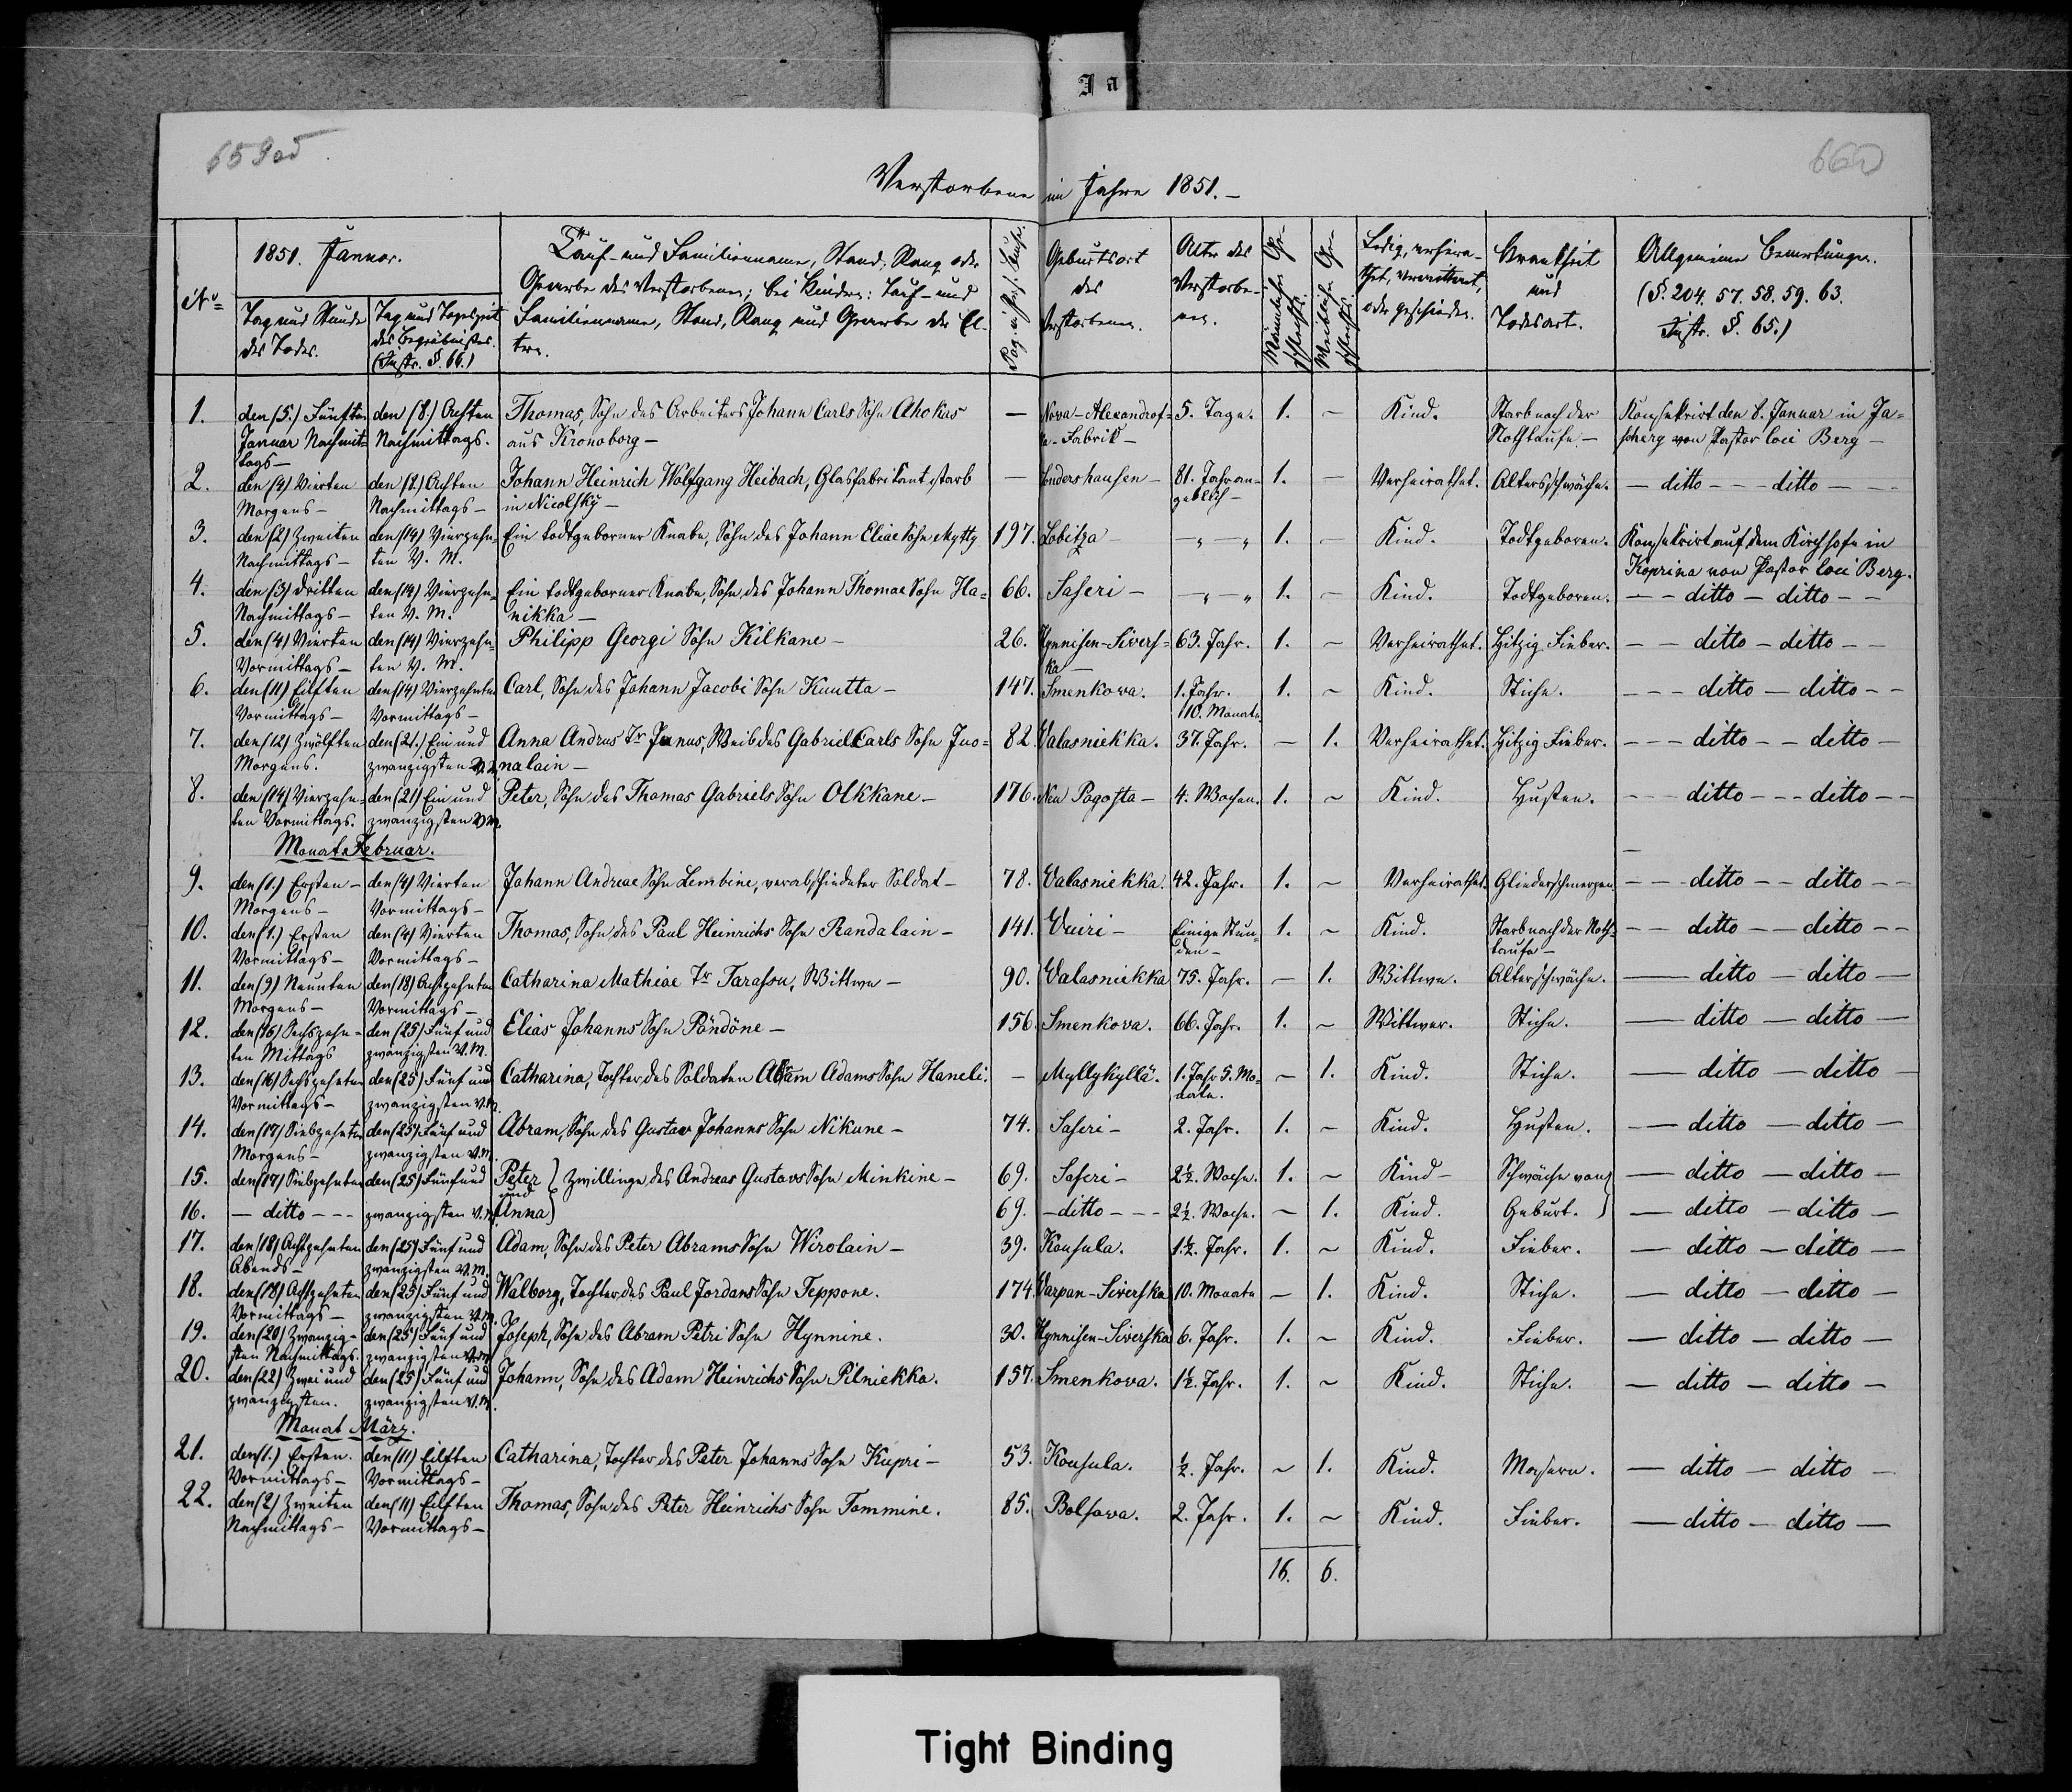 J a
659 od
660
Verstorbene im Jahre 1851.–
No
1851. Januar.
Tag und Stunde des Todes.
Tag und Tageszeit des Begräbnisses. (Instr. §. 66.)
Tauf- und Familienname, Stand, Rang oder
Gewerbe des Verstorbenen; bei Kindern: Tauf- und
Familienname, Stand, Rang und Gewerbe der El-
tern.
Geburtsort des Verstorbenen.
Alter des Verstorbe-
nen.
Männlichen Ge-
schlechts.
Weiblichen Ge-
schlechts.
Ledig, verheira-
thet, verwittwet,
oder geschieden.
Krankheit
und
Todesart.
Allgemeine Bemerkungen.
(§. 204. 57. 58. 59. 63.
Instr. §. 65.)
1. den (5.) Fünften den (8.) Achten Thomas, Sohn des Arbeiters Johann Carls Sohn Ahokas — Nova-Alexandrof- 5. Tage. 1. – Kind. Starb nach der Konsekrirt den 8. Januar in Ja-
Januar Nachmit- Nachmittags. aus Kronoborg – Fabrik – Nothtaufe – von Pastor loci Berg –
tags –
2. den (4) Vierten den (8.) Achten Johann Heinrich Wolfgang Heibach, Glasfabrikant starb — Sondershausen – 81. Jahr an- 1. – Verheirathet. Altersschwäche. – ditto – – ditto –
Morgens – Nachmittags – in Nicolsky – geblich –
3. den (2) Zweiten den (14) Vierzehn- Ein todtgeborner Knabe, Sohn des Johann Eliae Sohn Mytty 197. Lobitza – „ – „ 1. – Kind. Todtgeboren. Konsekrirt auf dem Kirchhofe in
Nachmittags – ten V. M. Koprina von Pastor loci Berg.
4. den (3) Dritten den (14) Vierzehn- Ein todtgeborner Knabe, Sohn des Johann Thomae Sohn Ha- 66. Saseri – – „ – „ 1. – Kind. Todtgeboren. – – ditto – ditto – –
Nachmittags – ten V. M. nikka –
5. den (4) Vierten den (14) Vierzehn- Philipp Georgi Sohn Kilkane – 26. Hynnisen-Sivers- 63. Jahr. 1. – Verheirathet. Hitzig Fieber. – – ditto – ditto – –
Vormittags – ten V. M. ka –
6. den (11) Eilften den (14) Vierzehnten Carl, Sohn des Johann Jacobi Sohn Kuutta – 147. Smenkowa. 1. Jahr. 1. – Kind. Stiche. – – – ditto – ditto – –
Vormittags – Vormittags – 10. Monate
7. den (12) Zwölften den (21.) Ein und Anna Andreas Tr Junus, Weib des Gabriel Carls Sohn Juo- 82. Walasniekka. 37. Jahr. – 1. Verheirathet. Hitzig Fieber. – – – ditto – – ditto –
Morgens. zwanzigsten V. M. nalain –
8. den (14) Vierzehn- den (21) Ein und Peter, Sohn des Thomas Gabriels Sohn Olkkane – 176. Neu Pogosta – 4. Wochen. 1. – Kind. Husten. – – ditto – – ditto – –
ten Vormittags. zwanzigsten V. M.
Monat Februar.
9. den (1.) Ersten – den (4) Vierten Johann Andreae Sohn Lembine, verabschiedeter Soldat – 78. Walasniekka. 42. Jahr. 1. – Verheirathet. Gliederschmerzen. – – ditto – – ditto – –
Morgens – Vormittags –
10. den (1.) Ersten den (4) Vierten Thomas, Sohn des Paul Heinrichs Sohn Randalain – 141. Wuiri – Einige Stun- 1. – Kind. Starb nach der Noth- – – ditto – – ditto – –
Vormittags – Vormittags – den – taufe –
11. den (9) Neunten den (18) Achtzehnten Catharina Mathiae Tr Tarassu, Wittwe – 90. Walasniekka 75. Jahr. – 1. Wittwe. Altersschwäche. – ditto – ditto –
Morgens – Vormittags –
12. den (16) Sechszehn- den (25) Fünf und Elias Johanns Sohn Pöndöne – 156. Smenkova. 66. Jahr. 1. – Wittwer. Stiche. – ditto – ditto –
ten Mittags zwanzigsten V. M.
13. den (16) Sechszehnten den (25) Fünf und Catharina, Tochter des Soldaten Adam Adams Sohn Haneli. – Myllykyllä. 1. Jahr 5. Mo- – 1. Kind. Stiche. – ditto – ditto –
Vormittags – zwanzigsten V. M. nate.
14. den (17) Siebzehnten den (25) Fünf und Abram, Sohn des Gustav Johanns Sohn Nikune – 74. Saseri – 2. Jahr. 1. – Kind. Husten. – ditto – ditto –
Morgens – zwanzigsten V. M.
15. den (17) Siebzehnten den (25) Fünf und Peter } Zwillinge des Andreas Gustavs Sohn Minkine – 69. Saseri – 2½. Woche. 1. – Kind – Schwäche von – ditto – ditto –
und
16. – ditto – – – zwanzigsten V. M. Anna } 69. – ditto – – – 2½. Woche. – 1. Kind. Geburt. – ditto – ditto –
17. den (18) Achtzehnten den (25) Fünf und Adam, Sohn des Peter Abrams Sohn Wirolain – 39. Kousula. 1.½. Jahr. 1. – Kind. Fieber. – ditto – ditto –
Abends – zwanzigsten V. M.
18. den (18) Achtzehnten den (25) Fünf und Walborg, Tochter des Paul Jordans Sohn Teppone. 174. Warpan-Siverska 10. Monate – 1. Kind. Stiche. – ditto – ditto –
Vormittags – zwanzigsten V. M.
19. den (20) Zwanzig- den (25) Fünf und Joseph, Sohn des Abram Petri Sohn Hynnine. 30. Hynnisen-Siwerska 6. Jahr. 1. – Kind. Fieber. – ditto – ditto –
sten Nachmittags. zwanzigsten V. M.
20. den (22) Zwei und den (25) Fünf und Johann, Sohn des Adam Heinrichs Sohn Pilniekka. 157. Smenkova. 1½. Jahr. 1. – Kind. Stiche. – ditto – ditto –
zwanzigsten. zwanzigsten V. M.
Monat März.
21. den (1.) Ersten. den (11) Eilften Catharina, Tochter des Peter Johanns Sohn Kupri – 53. Kousula. ½. Jahr. – 1. Kind. Masern. – ditto – ditto –
Vormittags – Vormittags –
22. den (2) Zweiten den (11) Eilften Thomas, Sohn des Peter Heinrichs Sohn Tommine. 85. Bolsowa. 2. Jahr. 1. – Kind. Fieber. – ditto – ditto –
Nachmittags – Vormittags –
16. 6.
Tight Binding